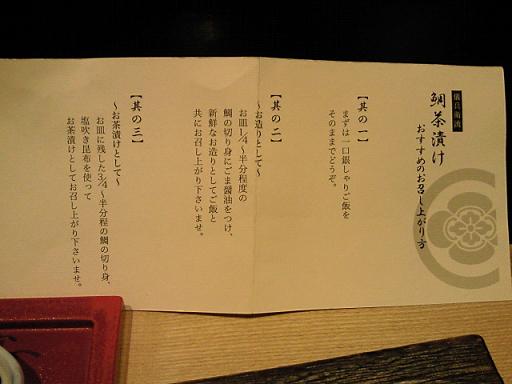 儀兵衛流
鯛茶漬け
おすすめのお召し上がり方
【其の一】
まずは一口銀しゃりご飯を
そのままでどうぞ。
【其の二】
～お造りとして～
お皿1/4～半分程度の
鯛の切り身にごま醤油をつけ、
新鮮なお造りとしてご飯と
共にお召し上がり下さいませ。
【其の三】
～お茶漬けとして～
お皿に残した3/4～半分程の鯛の切り身、
塩吹き昆布を使って
お茶漬けとしてお召し上がり下さいませ。